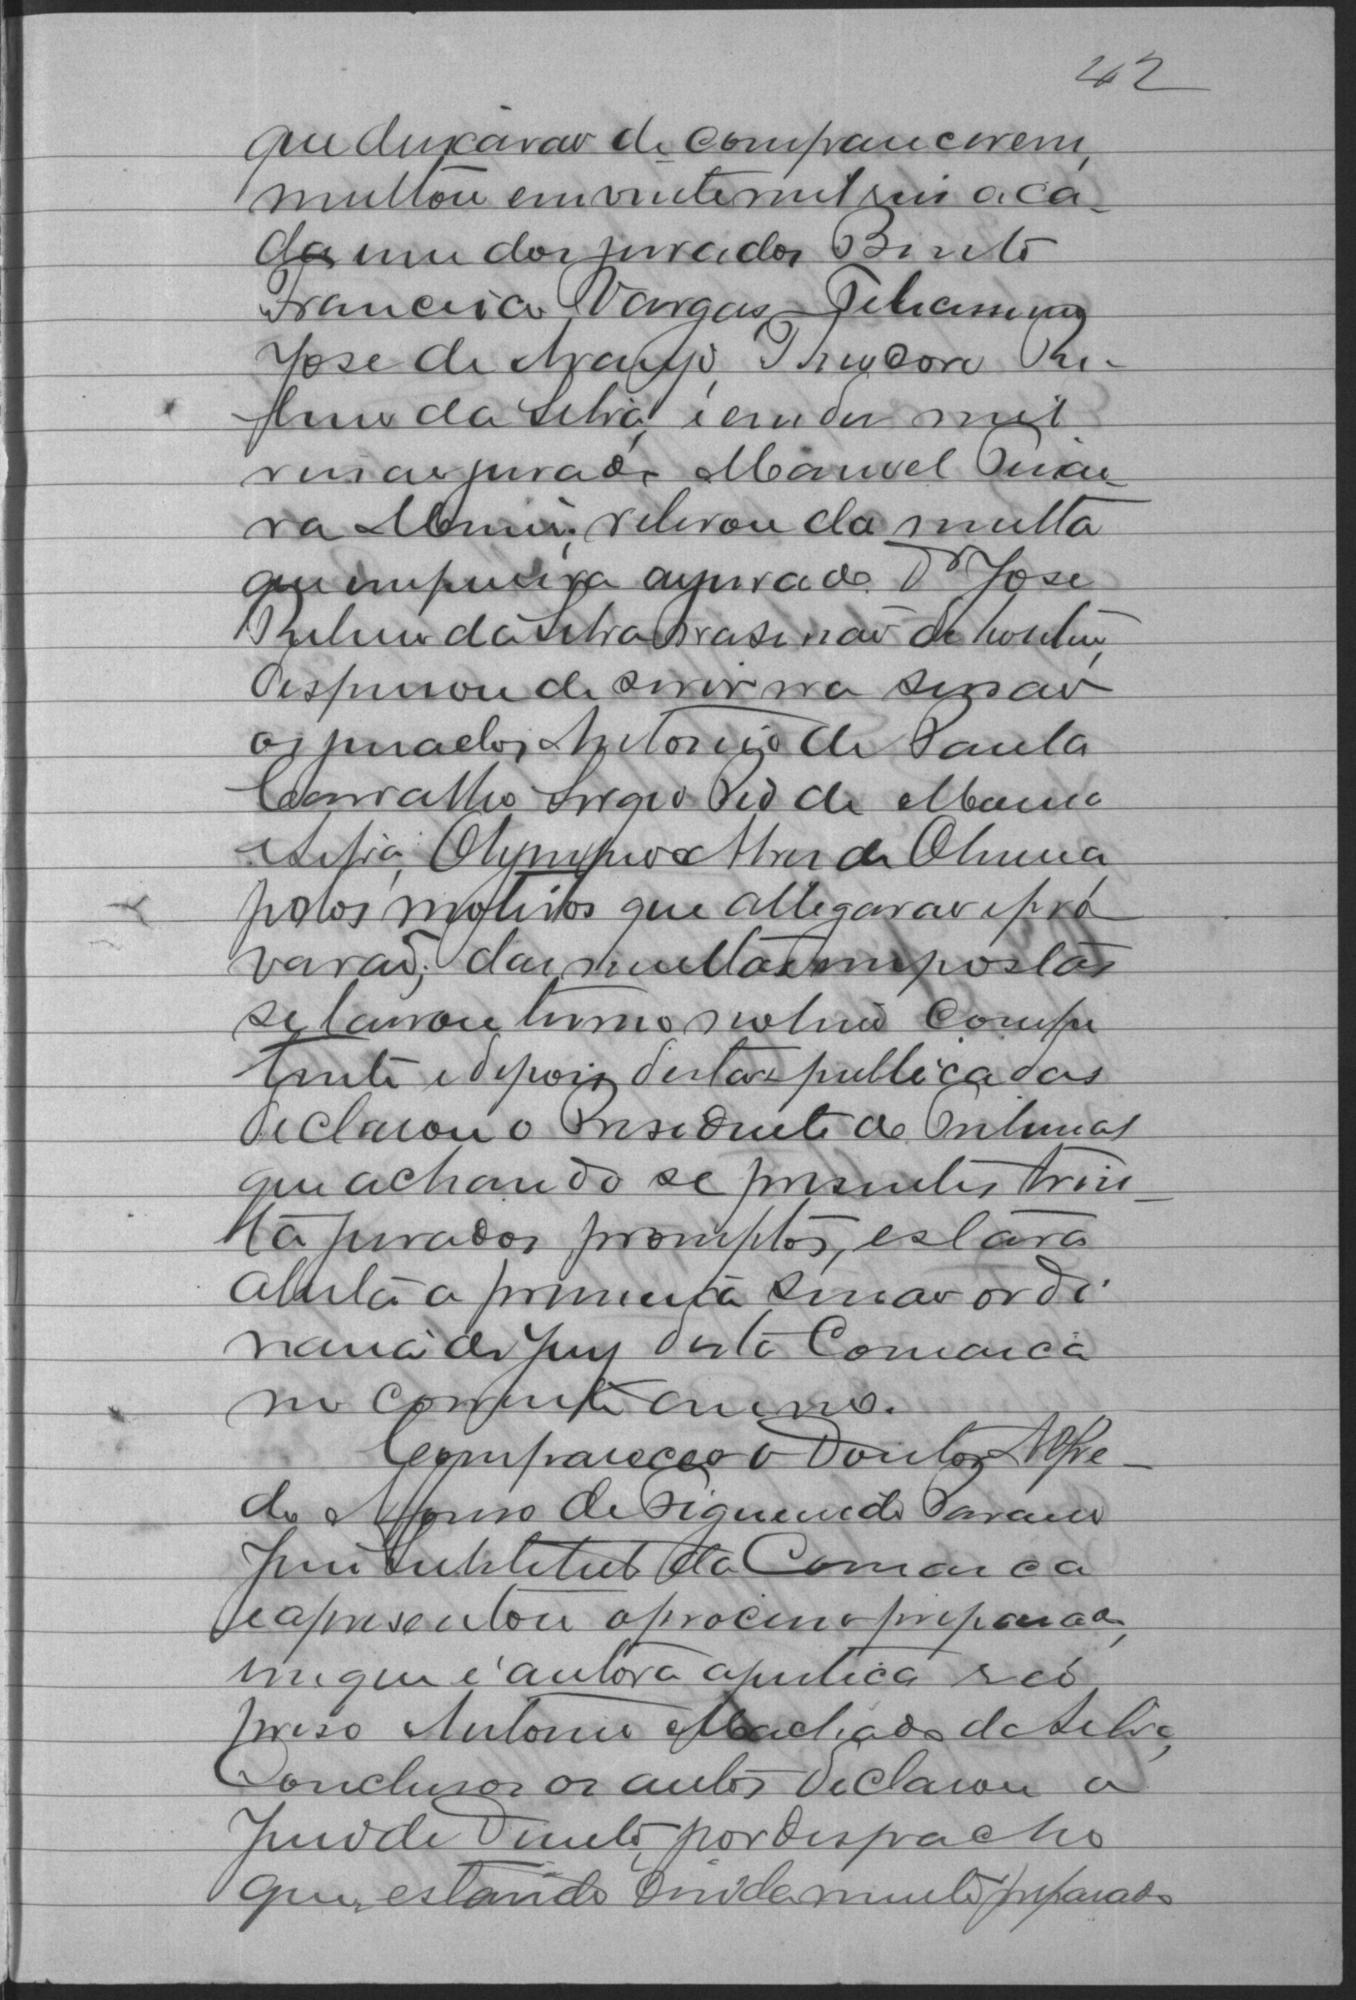 42
que deixárão de comparecerem,
multou em vinte mil reis a cá-
da um dos jurados Bento
Francisco Vargas,
José de Araujo, Theodoro Ru-
fino da Silva, e em dez mil
reis ao jurado Manoel
ra relevou da multa
que impusera ao jurado Dr José
Rufino da Silva na sessão de hontem,
dispensou de servir na sessão
os jurados Antonio de Paula
Carvalho Sergio Pio de
e Silva, Olympio Alves de Oliveira,
pelos motivos que allegarão e pro
varão; das multas impostas
se lavrou termo no livro compe
tente e depois destas publicadas
declarou o Presidente do Tribunal
que achando se presentes trin-
ta jurados promptos, estava
aberta a primeira sessão ordi
naria do Jury desta Comarca
no corrente anno.
Compareceo o Doutor Alfre-
do Affonso de Figueiredo Paraiso
Juiz Substituto da Comarca
e apresentou o processo preparado,
em que é autora a justiça réo
preso Antonio Machado da Silva,
Conclusos os autos declarou o
Juiz de Direito, por despacho
que, estando devidamente preparado